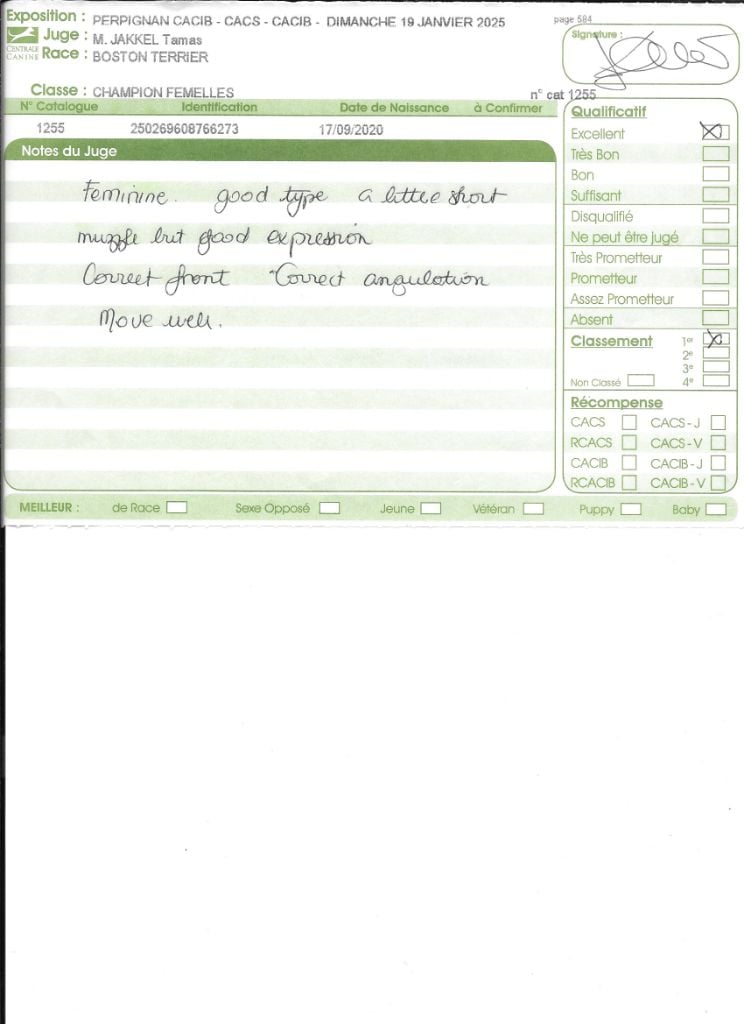 Exposition : PERPIGNAN CACIB - CACS - CACIB - DIMANCHE 19 JANVIER 2025
page 584
Signature :
CENTRALE CANINE
Juge : M. JAKKEL Tamas
Race : BOSTON TERRIER
Classe : CHAMPION FEMELLES
n° cat 1255
N° Catalogue Identification Date de Naissance à Confirmer
1255 250269608766273 17/09/2020
Notes du Juge
Feminine. good type a little short
muzzle but good expression
Correct front Correct angulation
Move well.
Qualificatif
Excellent
Très Bon
Bon
Suffisant
Disqualifié
Ne peut être jugé
Très Prometteur
Prometteur
Assez Prometteur
Absent
Classement 1er
2e
3e
Non Classé 4e
Récompense
CACS CACS - J
RCACS CACS - V
CACIB CACIB - J
RCACIB CACIB - V
MEILLEUR : de Race Sexe Opposé Jeune Vétéran Puppy Baby